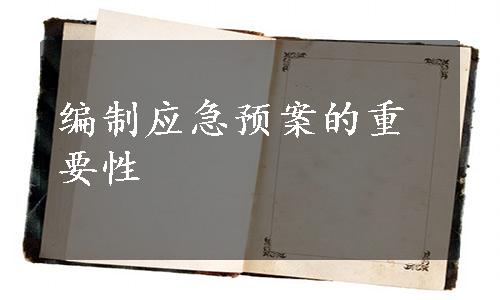 编制应急预案的重
要性